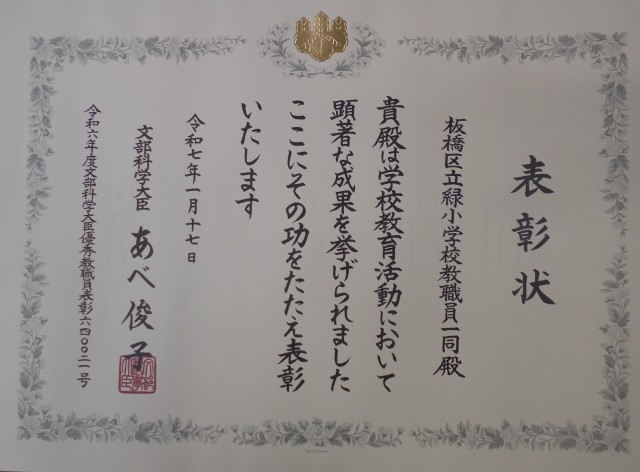 表彰状
板橋区立緑小学校教職員一同殿
貴殿は学校教育活動において
顕著な成果を挙げられました
ここにその功をたたえ表彰
いたします
令和七年一月十七日
文部科学大臣 あべ俊子
令和六年度文部科学大臣優秀教職員表彰六四〇〇二一号